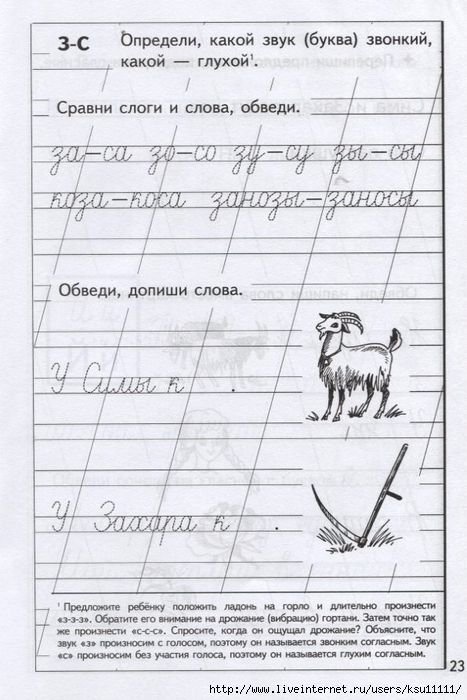 З-С Определи, какой звук (буква) звонкий,
какой — глухой¹.
Сравни слоги и слова, обведи.
за-са зо-со зу-су зы-сы
коза-коса занозы-заносы
Обведи, допиши слова.
У Симы к .
У Захара к .
¹ Предложите ребёнку положить ладонь на горло и длительно произнести
«з-з-з». Обратите его внимание на дрожание (вибрацию) гортани. Затем точно так
же произнести «с-с-с». Спросите, когда он ощущал дрожание? Объясните, что
звук «з» произносим с голосом, поэтому он называется звонким согласным. Звук
«с» произносим без участия голоса, поэтому он называется глухим согласным.
23
http://www.liveinternet.ru/users/ksu11111/